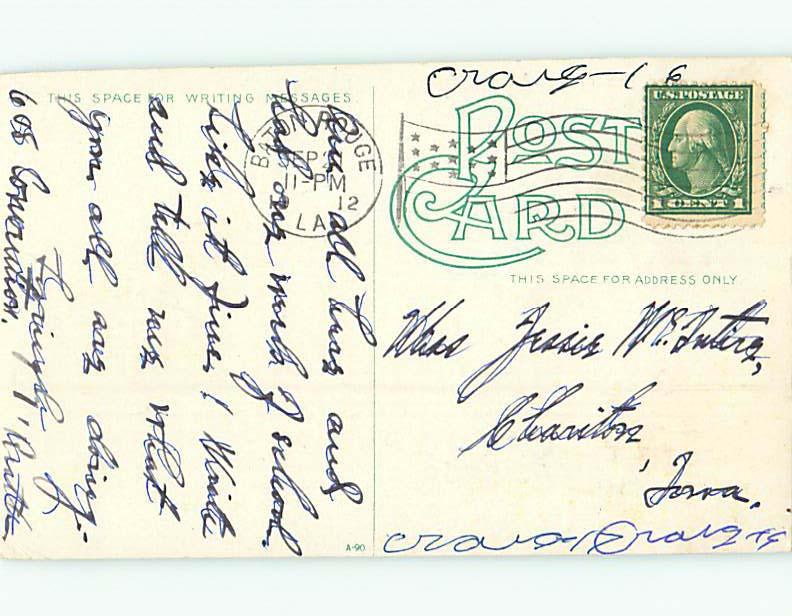 THIS SPACE FOR WRITING MESSAGES
Am all here and
had one week of school.
Like it fine! Write
and tell me what
you all are doing.
Ruth
605 Convention.
BATON ROUGE
SEP
11-PM
12
LA.
A-90
POST CARD
U.S. POSTAGE
1 CENT 1
THIS SPACE FOR ADDRESS ONLY.
Miss Jessie McIntire,
Chariton,
Iowa.